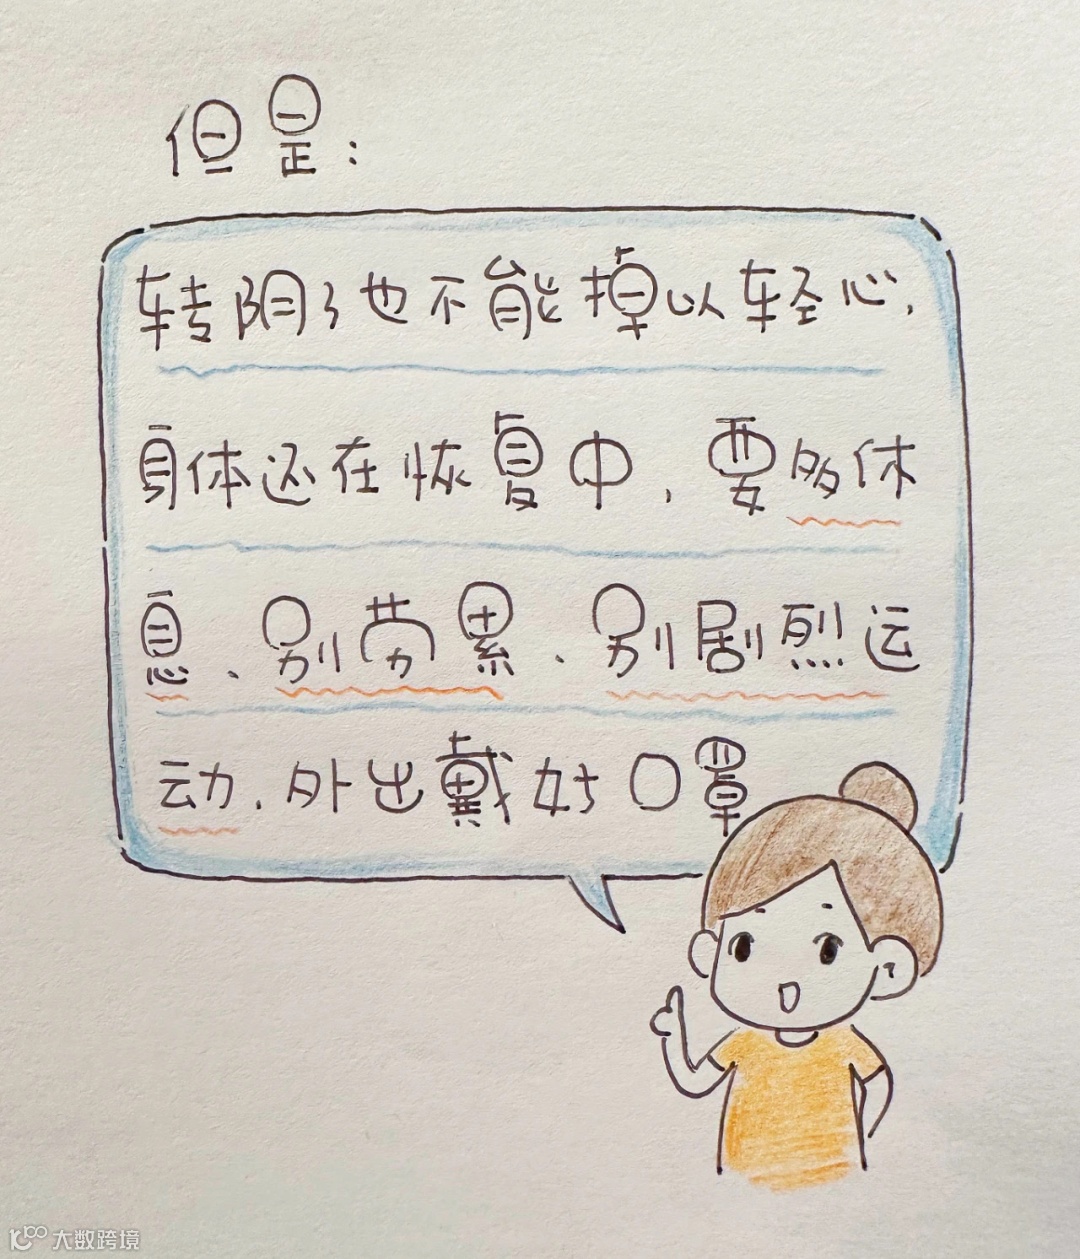 但是:
转阴了也不能掉以轻心,
身体还在恢复中,要多休
息、别劳累、别剧烈运
动,外出戴好口罩
大数跨境